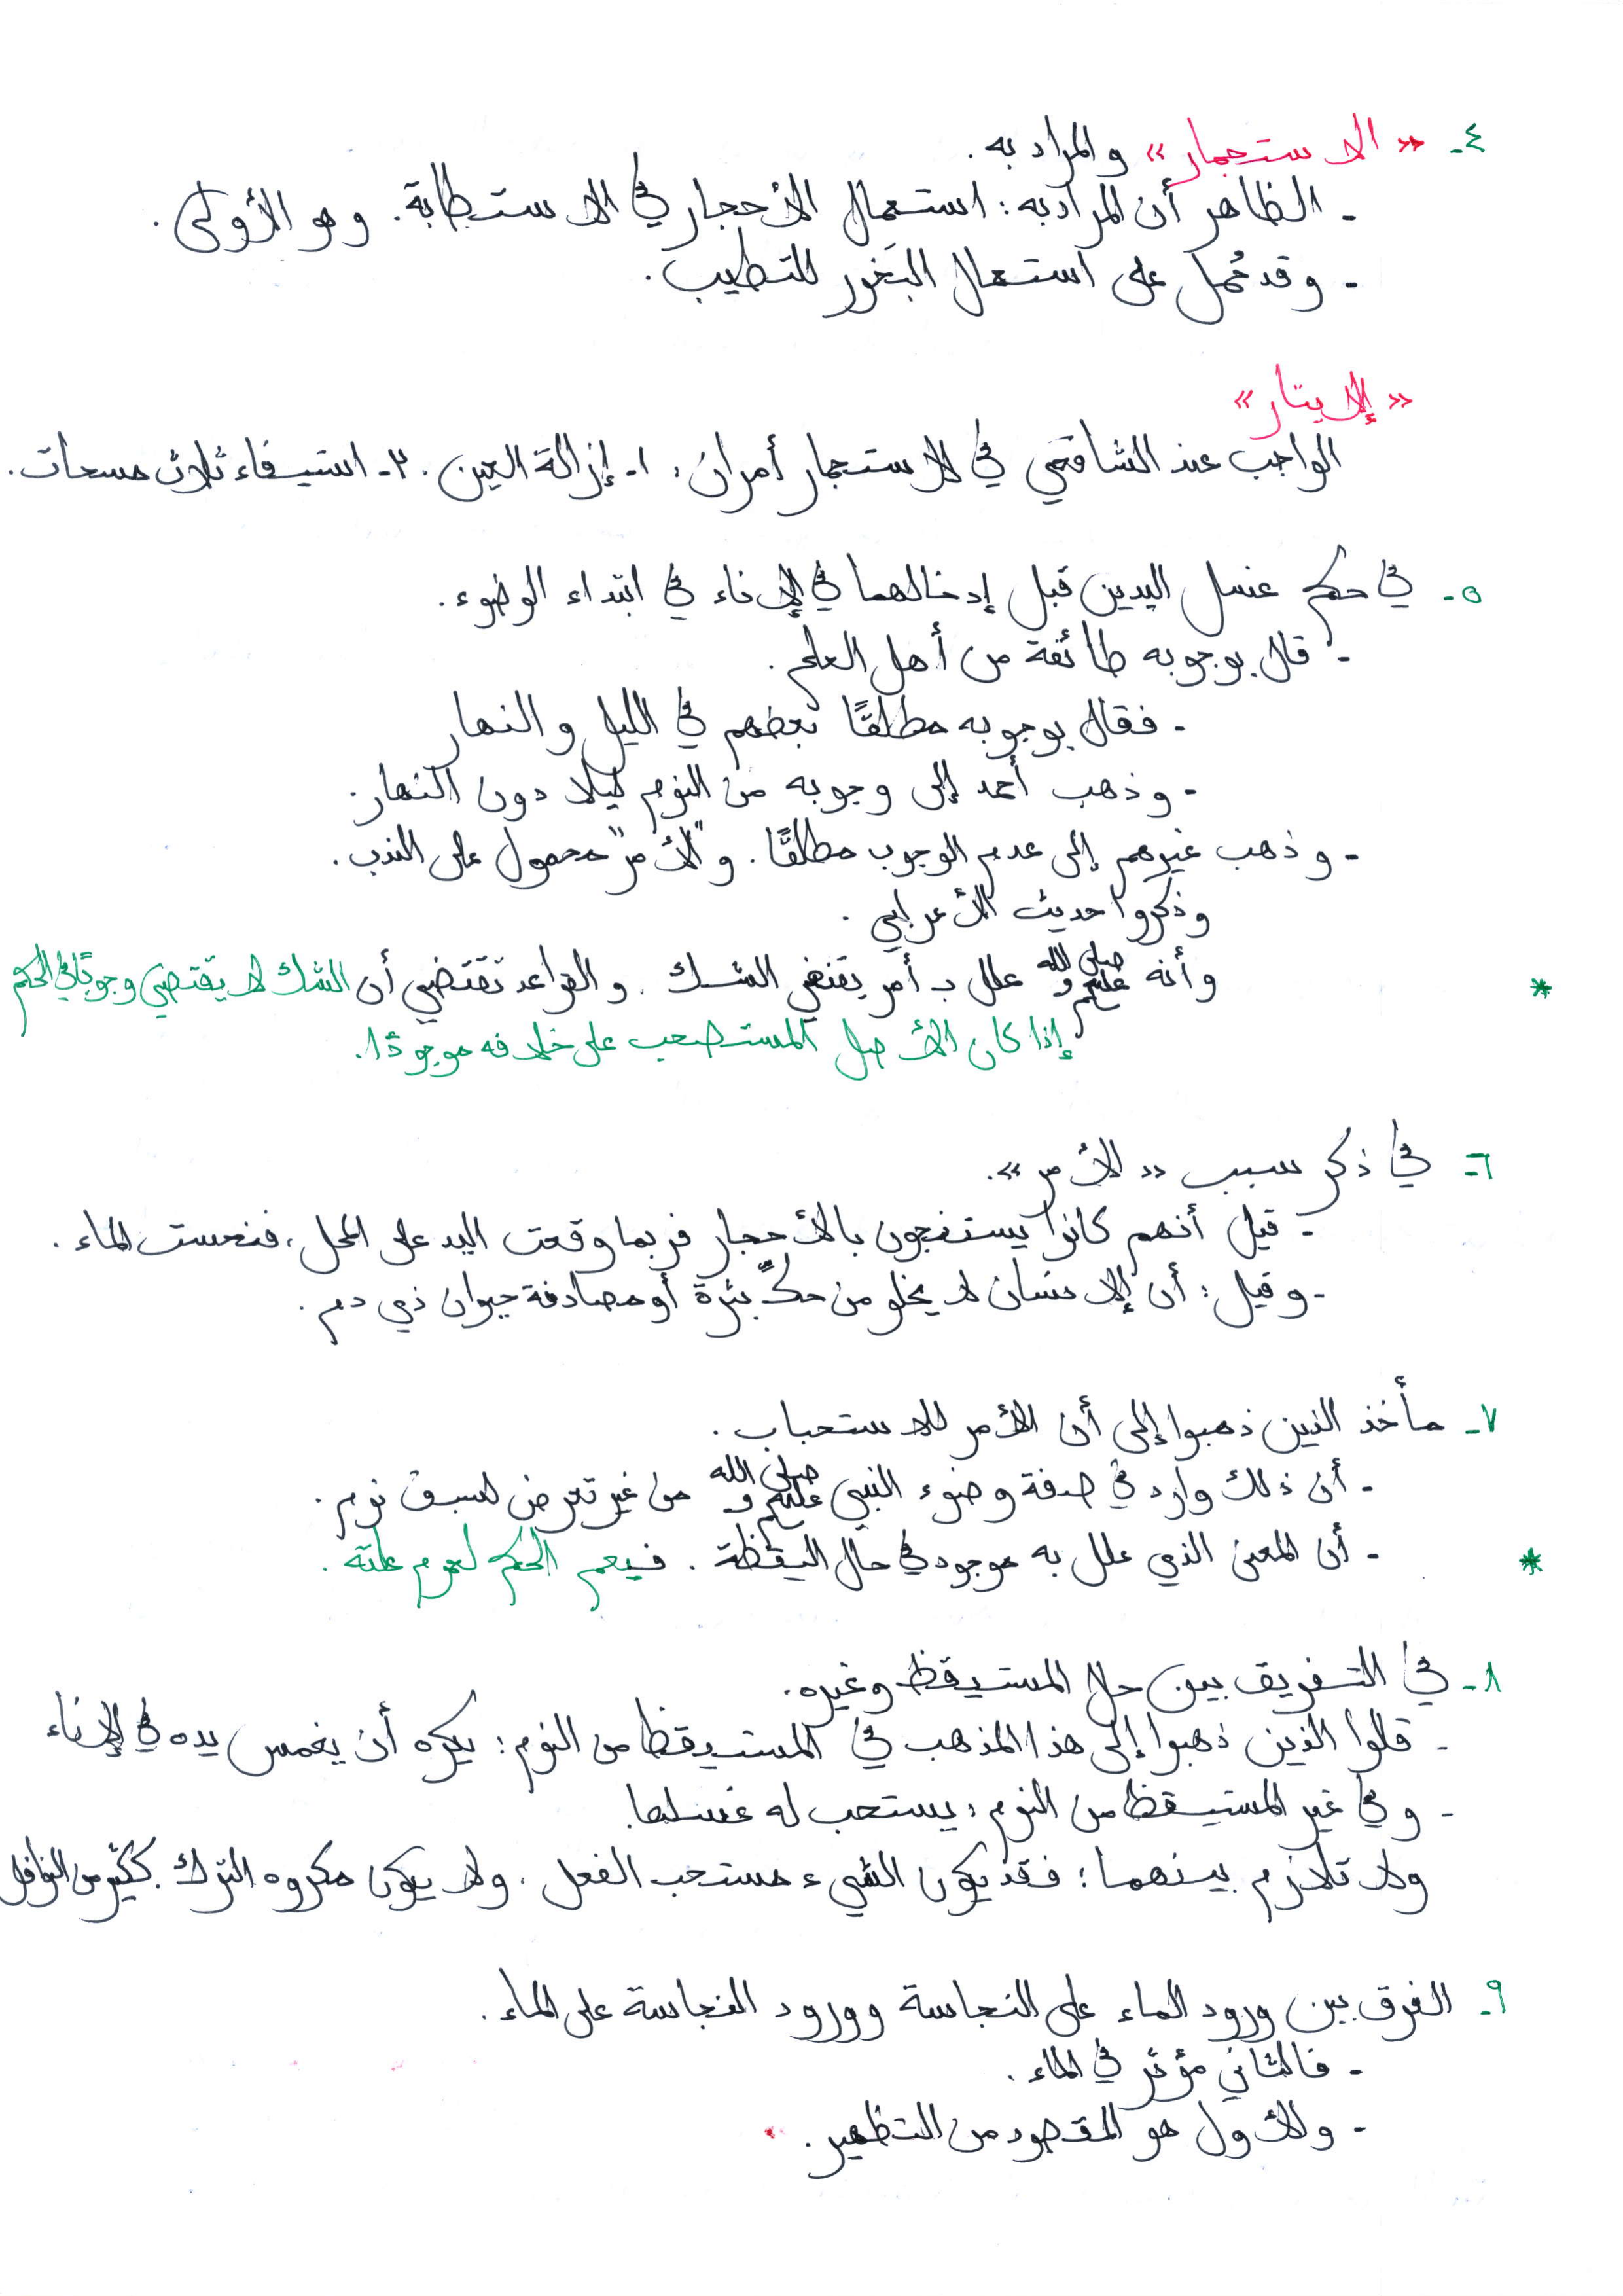 ٤- «الاستجمار» والمراد به.
- الظاهر أن المراد به: استعمال الأحجار في الاستطابة. وهو الأولى.
- وقد حُمل على استعمال البَخور للتطيب.
«الإيتار»
الواجب عند الشافعي في الاستجمار أمران: ١- إزالة العين. ٢- استيفاء ثلاث مسحات.
٥- في حكم غسل اليدين قبل إدخالهما في الإناء في ابتداء الوضوء.
- قال بوجوبه طائفة من أهل العلم.
- فقال بوجوبه مطلقًا بعضهم في الليل والنهار
- وذهب أحمد إلى وجوبه من النوم ليلا دون النهار.
- وذهب غيرهم إلى عدم الوجوب مطلقًا. و"الأمر" محمول على الندب.
وذكروا حديث الأعرابي.
* وأنه صلى الله عليه وسلم علل بـ أمر يقتضي الشك. والقواعد تقتضي أن الشك لا يقتضي وجوبًا في الحكم
إذا كان الأصل المستصحب على خلافه موجودًا.
٦- في ذكر سبب «الأمر».
- قيل أنهم كانوا يستنجون بالأحجار فربما وقعت اليد على المحل، فنجست الماء.
- وقيل: أن الإنسان لا يخلو من حكّ بثرة أو مصادفة حيوان ذي دم.
٧- مأخذ الذين ذهبوا إلى أن الأمر للاستحباب.
- أن ذلك وارد في صفة وضوء النبي صلى الله عليه وسلم من غير تعرض لسبق نوم.
* - أن المعنى الذي علل به موجود في حال اليقظة. فيعم الحكم لعموم علته.
٨- في التفريق بين حال المستيقظ وغيره.
- قلوا الذين ذهبوا إلى هذا المذهب في المستيقظ من النوم: يكره أن يغمس يده في الإناء
- وفي غير المستيقظ من النوم: يستحب له غسلها.
ولا تلازم بينهما: فقد يكون الشيء مستحب الفعل. ولا يكون مكروه الترك. ككثير من النوافل
٩- الفرق بين ورود الماء على النجاسة وورود النجاسة على الماء.
- فالثاني مؤثر في الماء.
- والأول هو المقصود من التطهير.